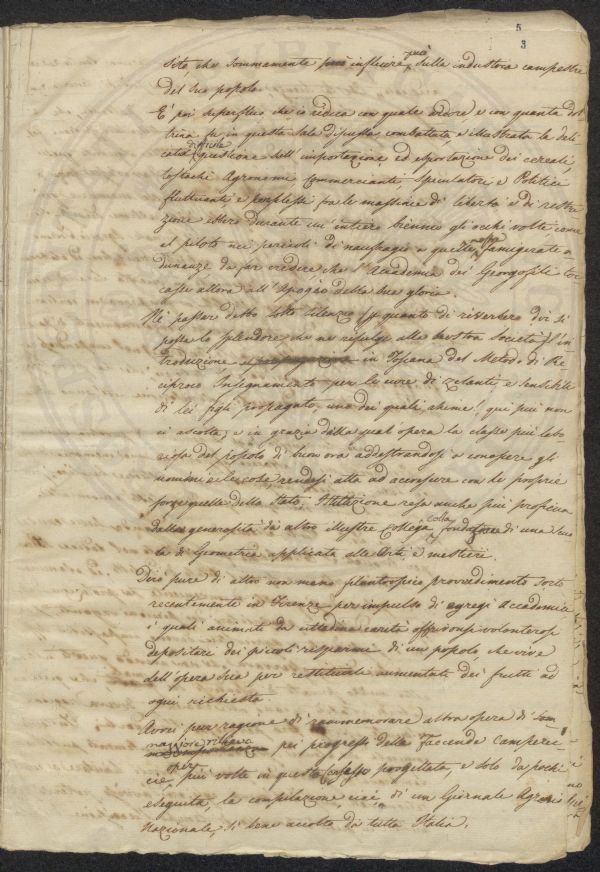 5
3
sità che sommamente può influire sulla industria campestre
del suo popolo.
E' poi superfluo che io ridica con quale ardore e con quanta dot
trina fu in questa Sala discussa, combattuta, e illustrata la deli
cata difficile questione dell'importazione, ed esportazione dei cereali,
tostochè Agronomi Commercianti, Speculatori, e Politici
fluttuanti e perplessi fra le massime di libertà e di restri
zione ebbero durante un'intiero biennio gli occhi volti come
al piloto nei pericoli di naufragio a queste nostre famigerate a
dunanze da far credere che l'Accademia dei Georgofili toc
casse allora all'Apogeo della sua gloria.
Nè passar debbo sotto silenzio (per quanto di riverbero di
possa lo splendore che ne rifulge alla nostra Società) l'in
troduzione in Toscana del Metodo di Re
ciproco Insegnamento per le cure di zelanti, e sensibili
di lei figli propagato, uno dei quali ahimè! qui più non
ci ascolta, e in grazia della qual opera la classe più labo
riosa del popolo di buon ora addestrandosi a conoscere gli
uomini e le cose rendesi atta ad accrescere con le proprie
forze quelle dello Stato, Istituzione resa anche più proficua
dalla generosità di altro illustre Collega colla fondazione di una Scuo
la di Geometria applicata alle Arti, e mestieri.
Dirò pure di altro non meno filantropico provvedimento sorto
recentemente in Firenze per impulso di egregi Accademici
i quali animati da cittadina carità offrironsi volenterosi
depositari dei piccoli risparmi di un popolo che vive
dell'opera sua per restituirli aumentati dei frutti ad
ogni richiesta.
Avrei pur ragione di rammemorare altra opera di som
maggiore rilievo pei progressi delle Faccende camperec
cie, opera più volte in questo Consesso progettata, e solo da pochi
eseguita, la compilazione, cioè, di un Giornale Agrario
Nazionale, sì bene accolto da tutta Italia.